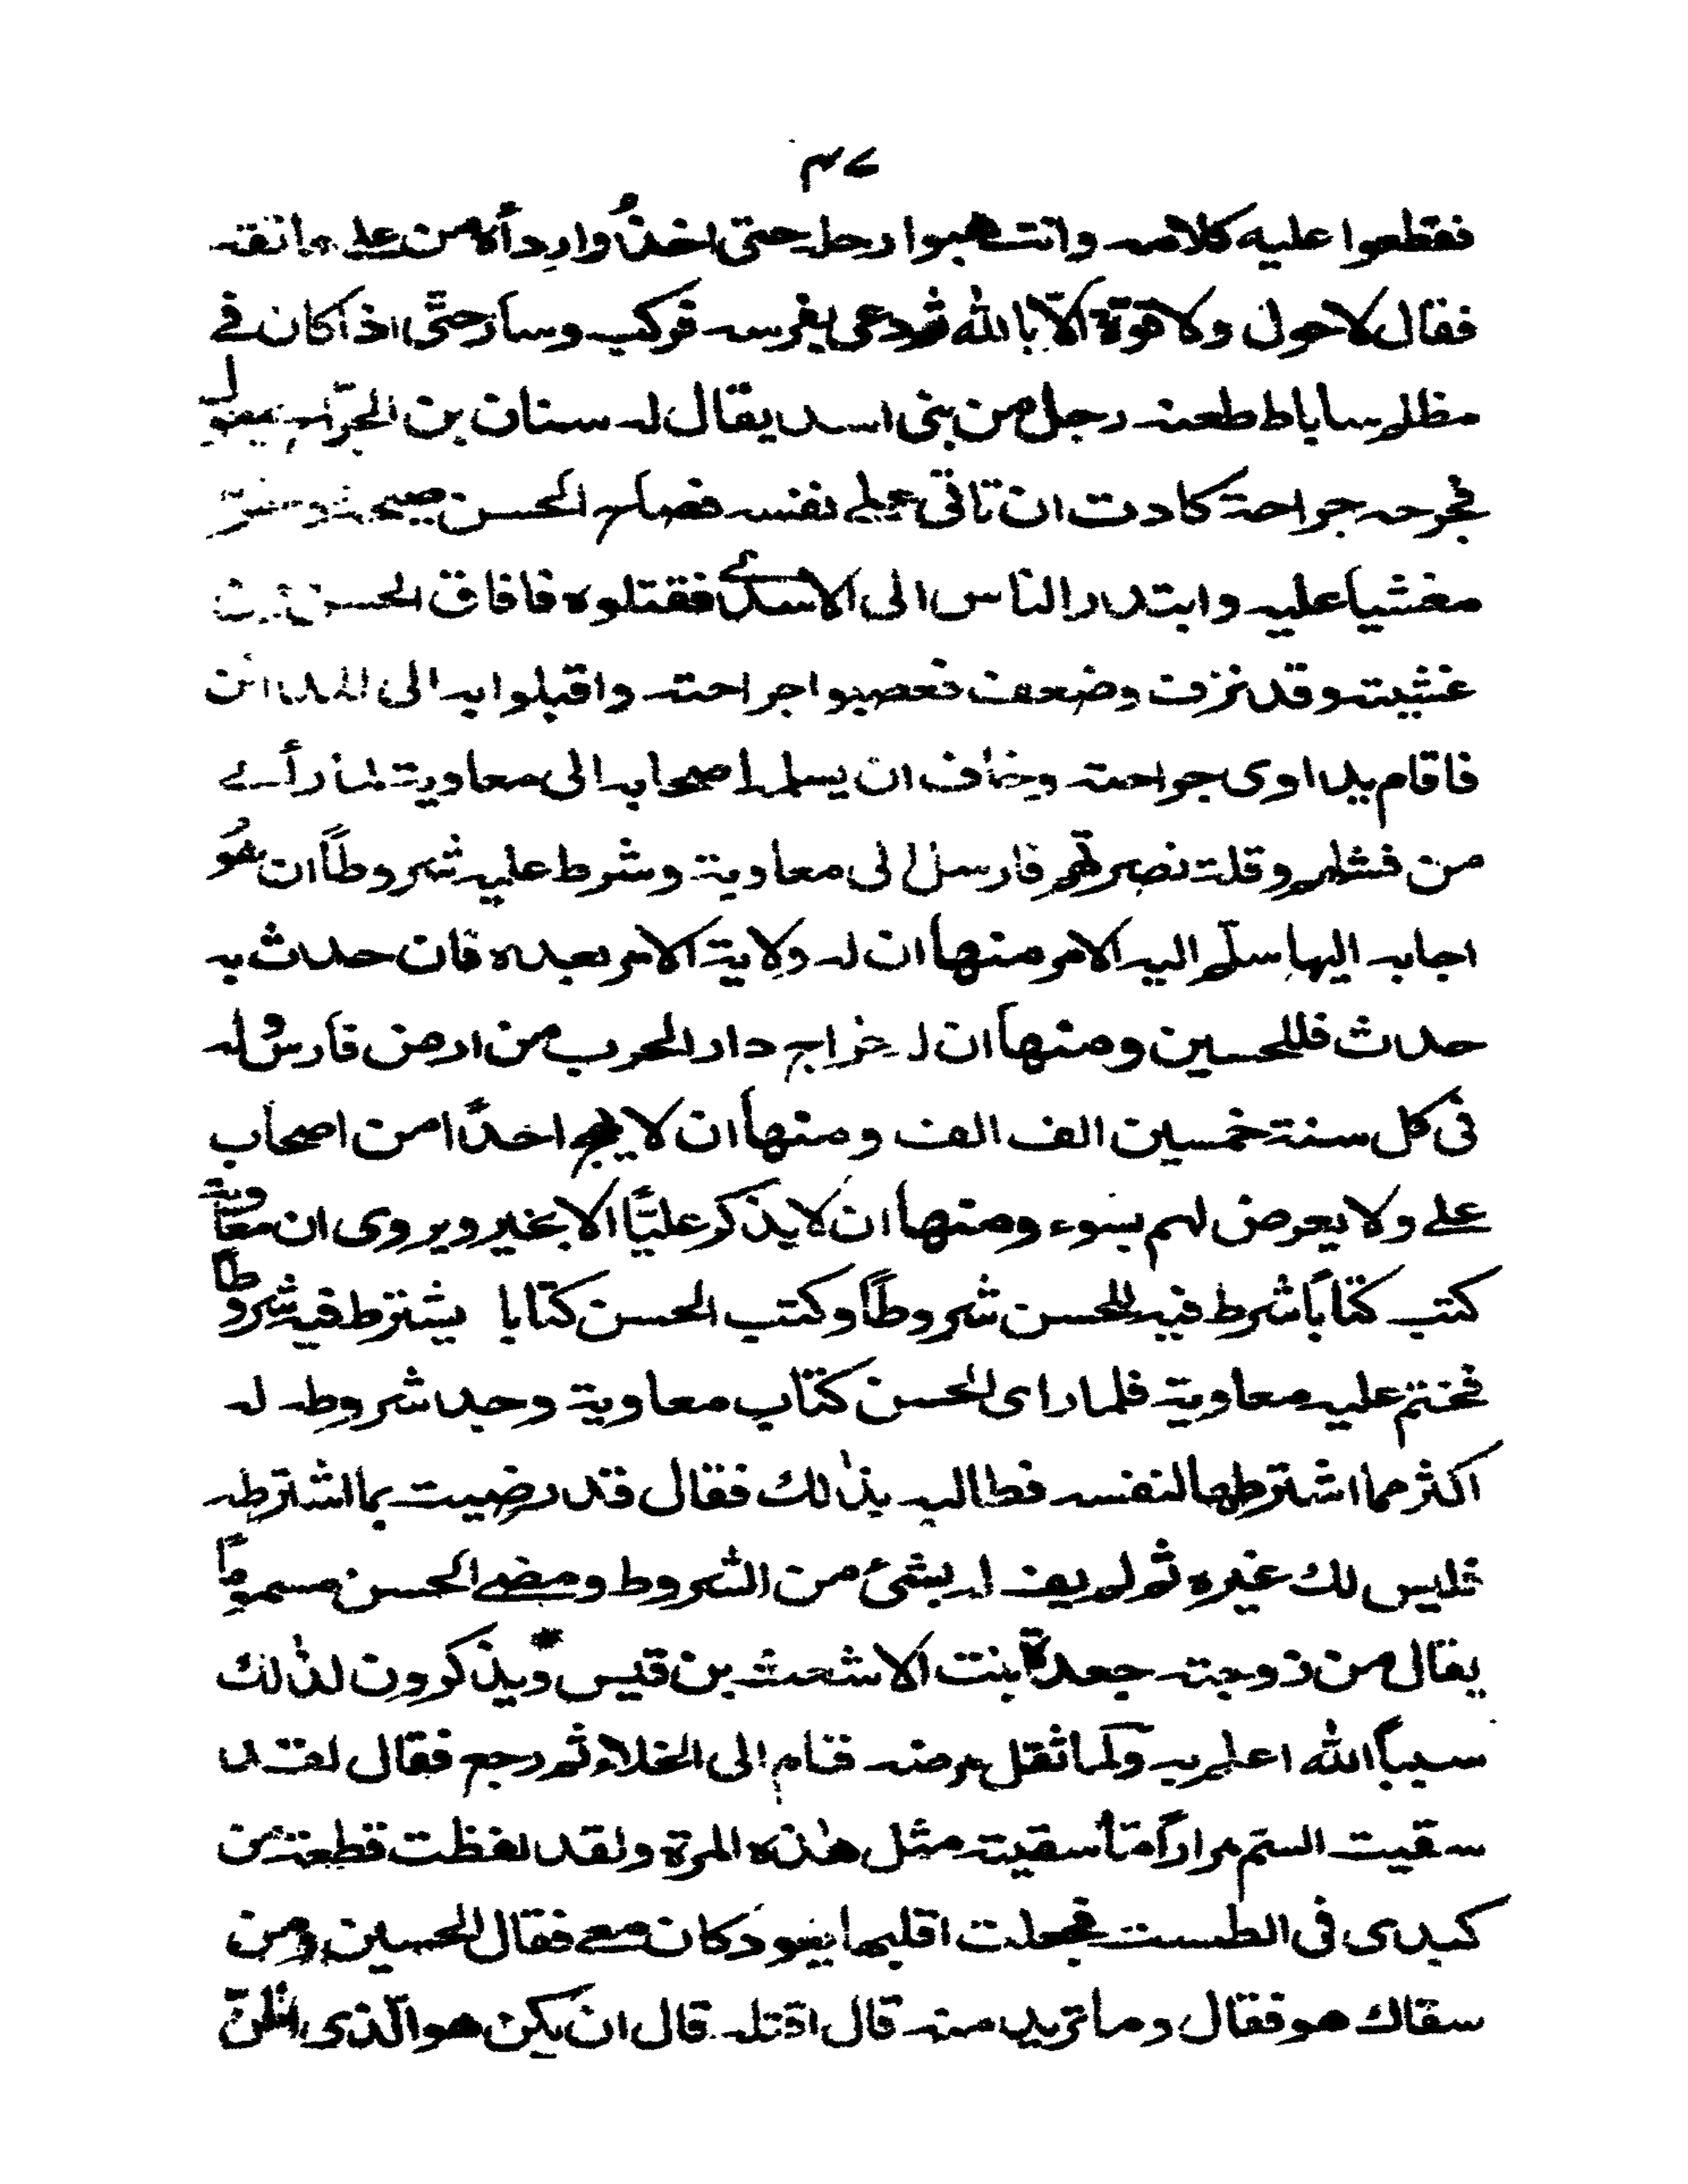 ٤٧
فقطعوا عليه كلامه وانتهبوا رحله حتى اخذوا رداأه من على عاتقه
فقال لاحول ولا قوة الّا بالله ثم دعى بفرسه فركب وسار حتّى اذا كان فے
مظلم ساباط طعنه رجل من بنى اسد يقال له سنان بن الجرّاح بمعول
فجرحه جراحة كادت ان تاتى على نفسه فصاح الحسن صيحة وخرّ
مغشيا عليه وابتدر الناس الى الاسدے فقتلوه فافاق الحسن من
غشيته وقد نزف وضعف فعصبوا جراحته واقبلوا به الى المدائن
فاقام يداوى جراحته وخاف ان يسلمه اصحابه الى معاوية لما رأے
من فشلهم وقلة نصرتهم فارسل الى معاوية وشرط عليه شروطاً ان هُو
اجابه اليها سلّم اليه الامر منها ان له ولاية الامر بعده فان حدث به
حدث فللحسين ومنها ان له خراج دار الحرب من ارض فارس وله
فى كل سنة خمسين الف الف ومنها ان لا يهيج احدًا من اصحاب
على ولا يعرض لهم بسوء ومنها ان لا يذكر عليًّا الا بخير ويروى ان معاوية
كتب كتابًا شرط فيه للحسن شروطاً وكتب الحسن كتابا يشترط فيه شروطاً
فختم عليه معاوية فلما راى الحسن كتاب معاوية وجد شروطه له
اكثر مما اشترطها لنفسه فطالبه بذٰلك فقال قد رضيت بما اشترطه
فليس لك غيره ثم لم يف له بشئ من الشروط ومضى الحسن مسموماً
يقال من زوجته جعدة بنت الاشعث بن قيس ويذكرون لذٰلك
سبباً الله اعلم به ولما ثقل مرضه قام الى الخلاء ثم رجع فقال لقد
سقيت السّم مراراً ما سقيته مثل هٰذه المرة ولقد لفظت قطعة من
كبدى فى الطست فجعلت اقلبها بعود كان معى فقال الحسين ومن
سقاك هو فقال وما تريد منه قال اقتله قال ان يكن هو الّذى اظنّ